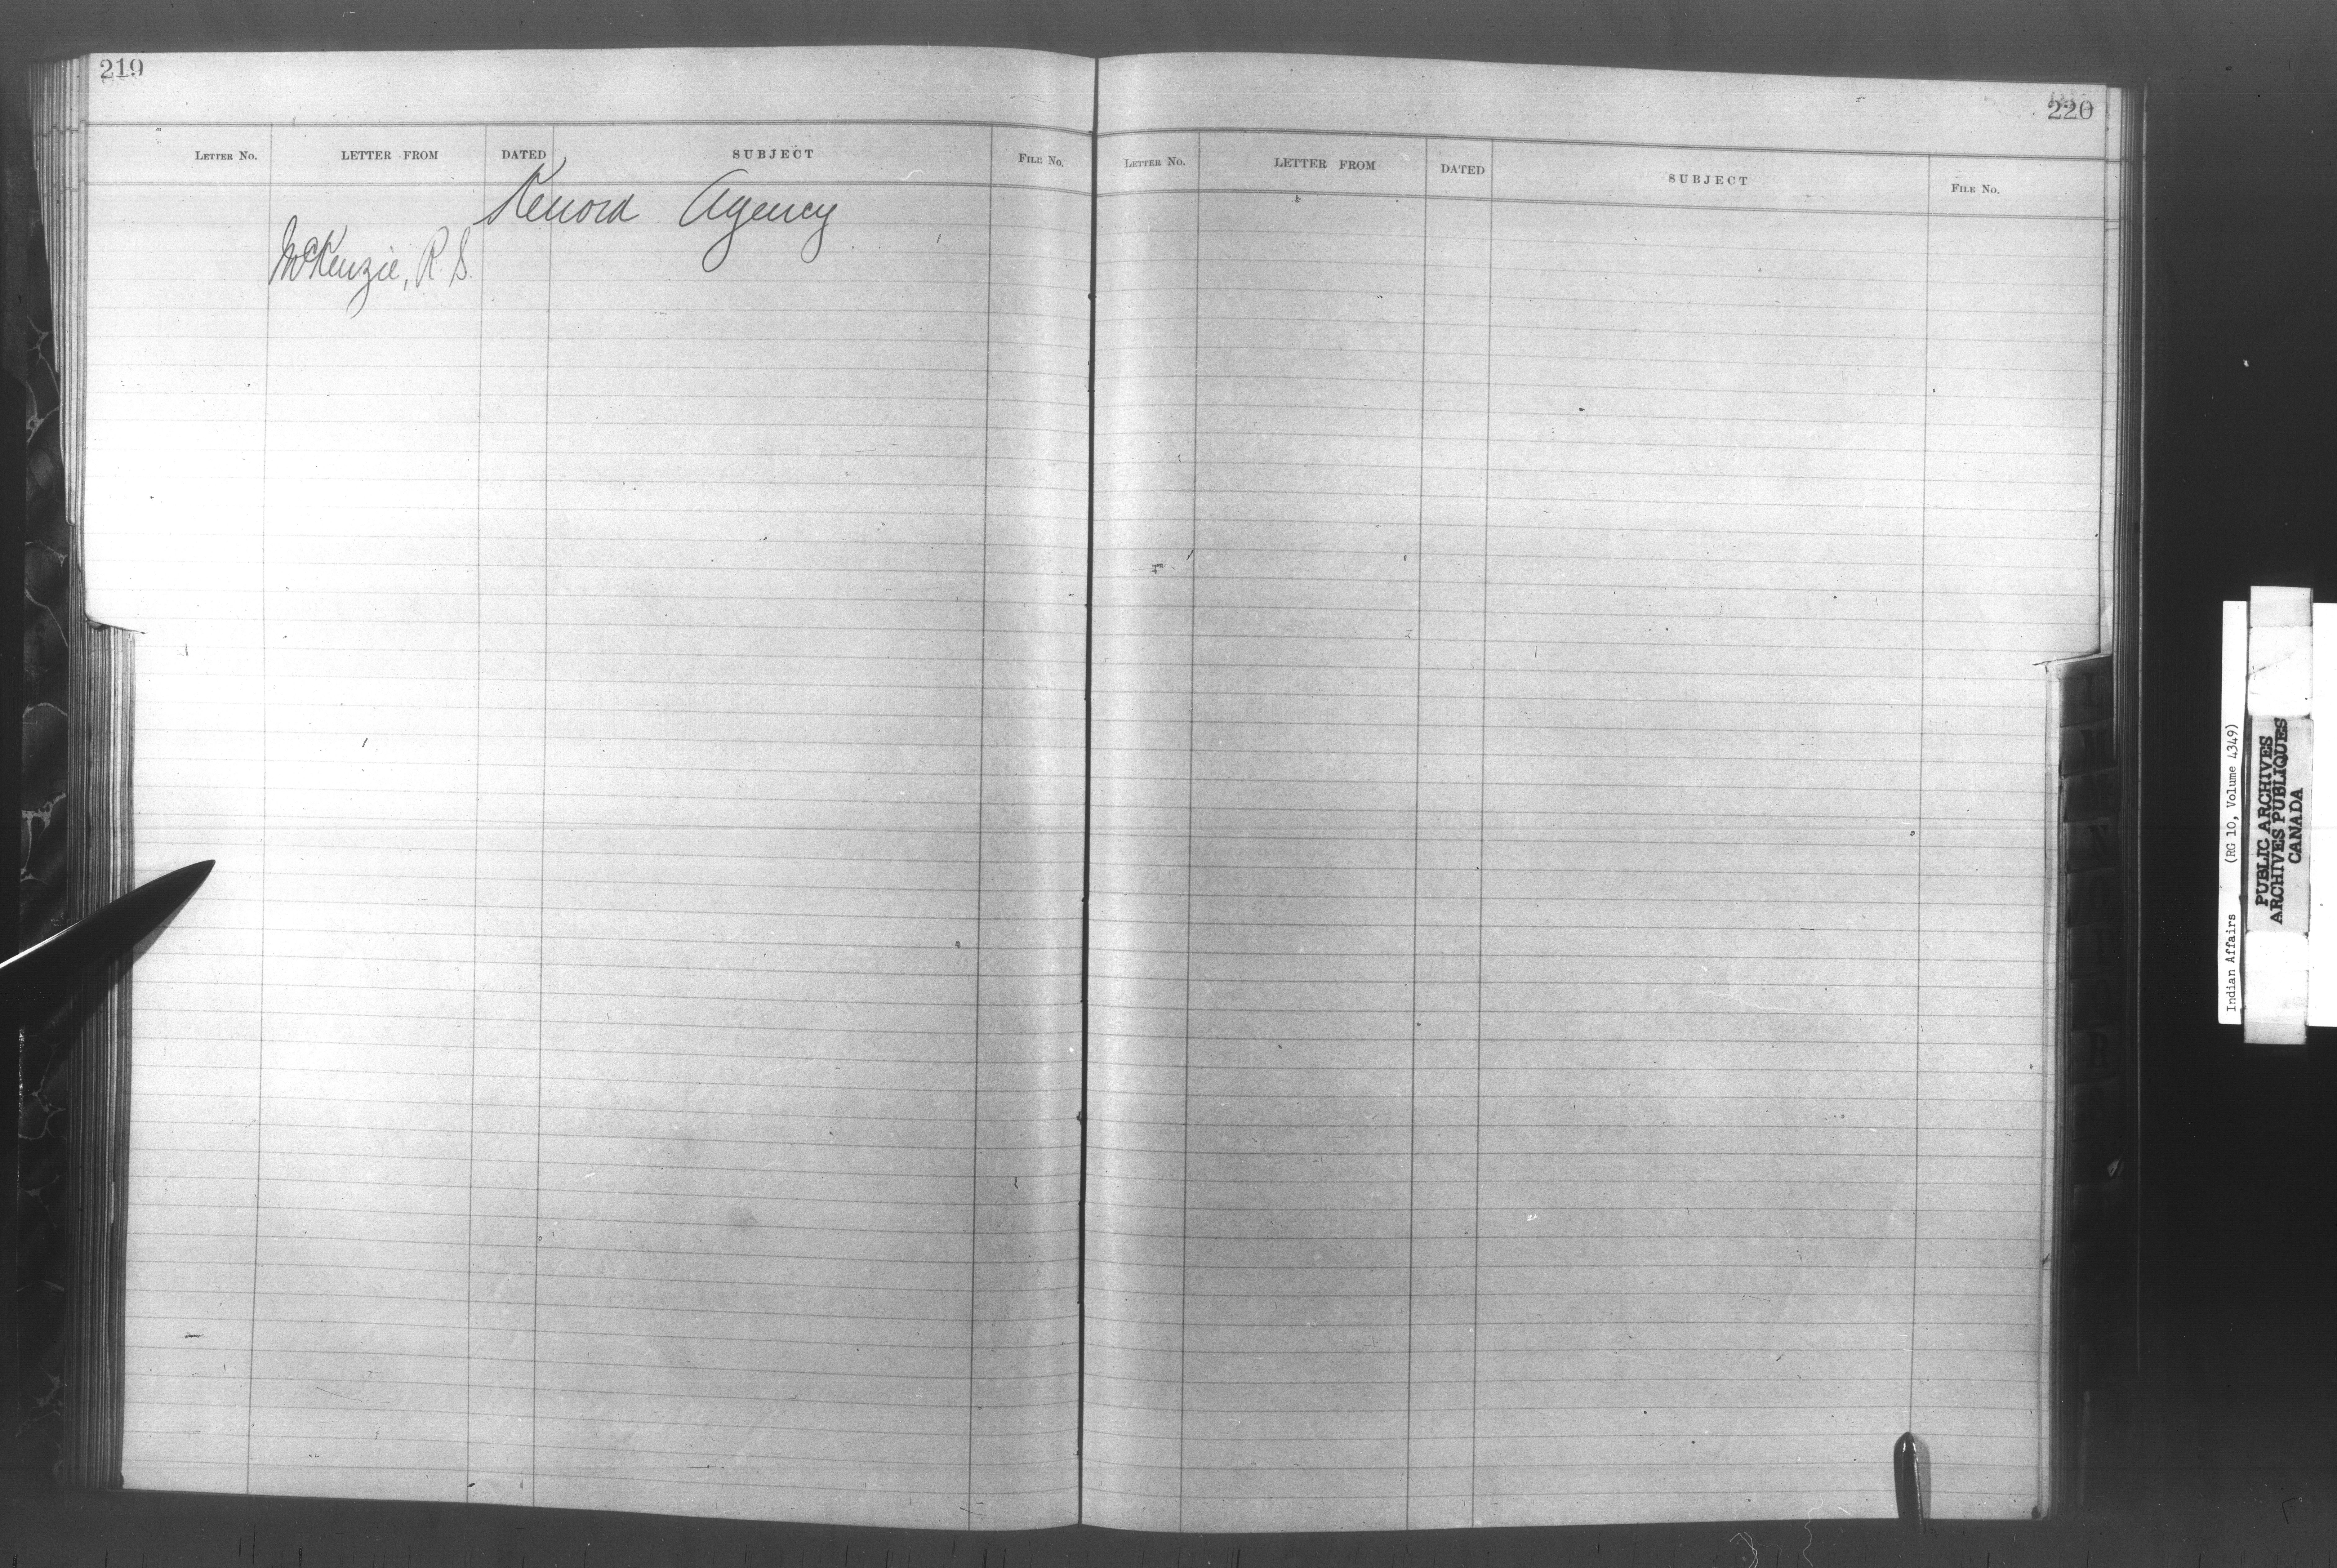 219
LETTER NO. LETTER FROM DATED SUBJECT FILE NO.
Kenora Agency
McKenzie, R. S.
220
LETTER NO. LETTER FROM DATED SUBJECT FILE NO.
Indian Affairs (RG 10, Volume 4349)
PUBLIC ARCHIVES
ARCHIVES PUBLIQUES
CANADA